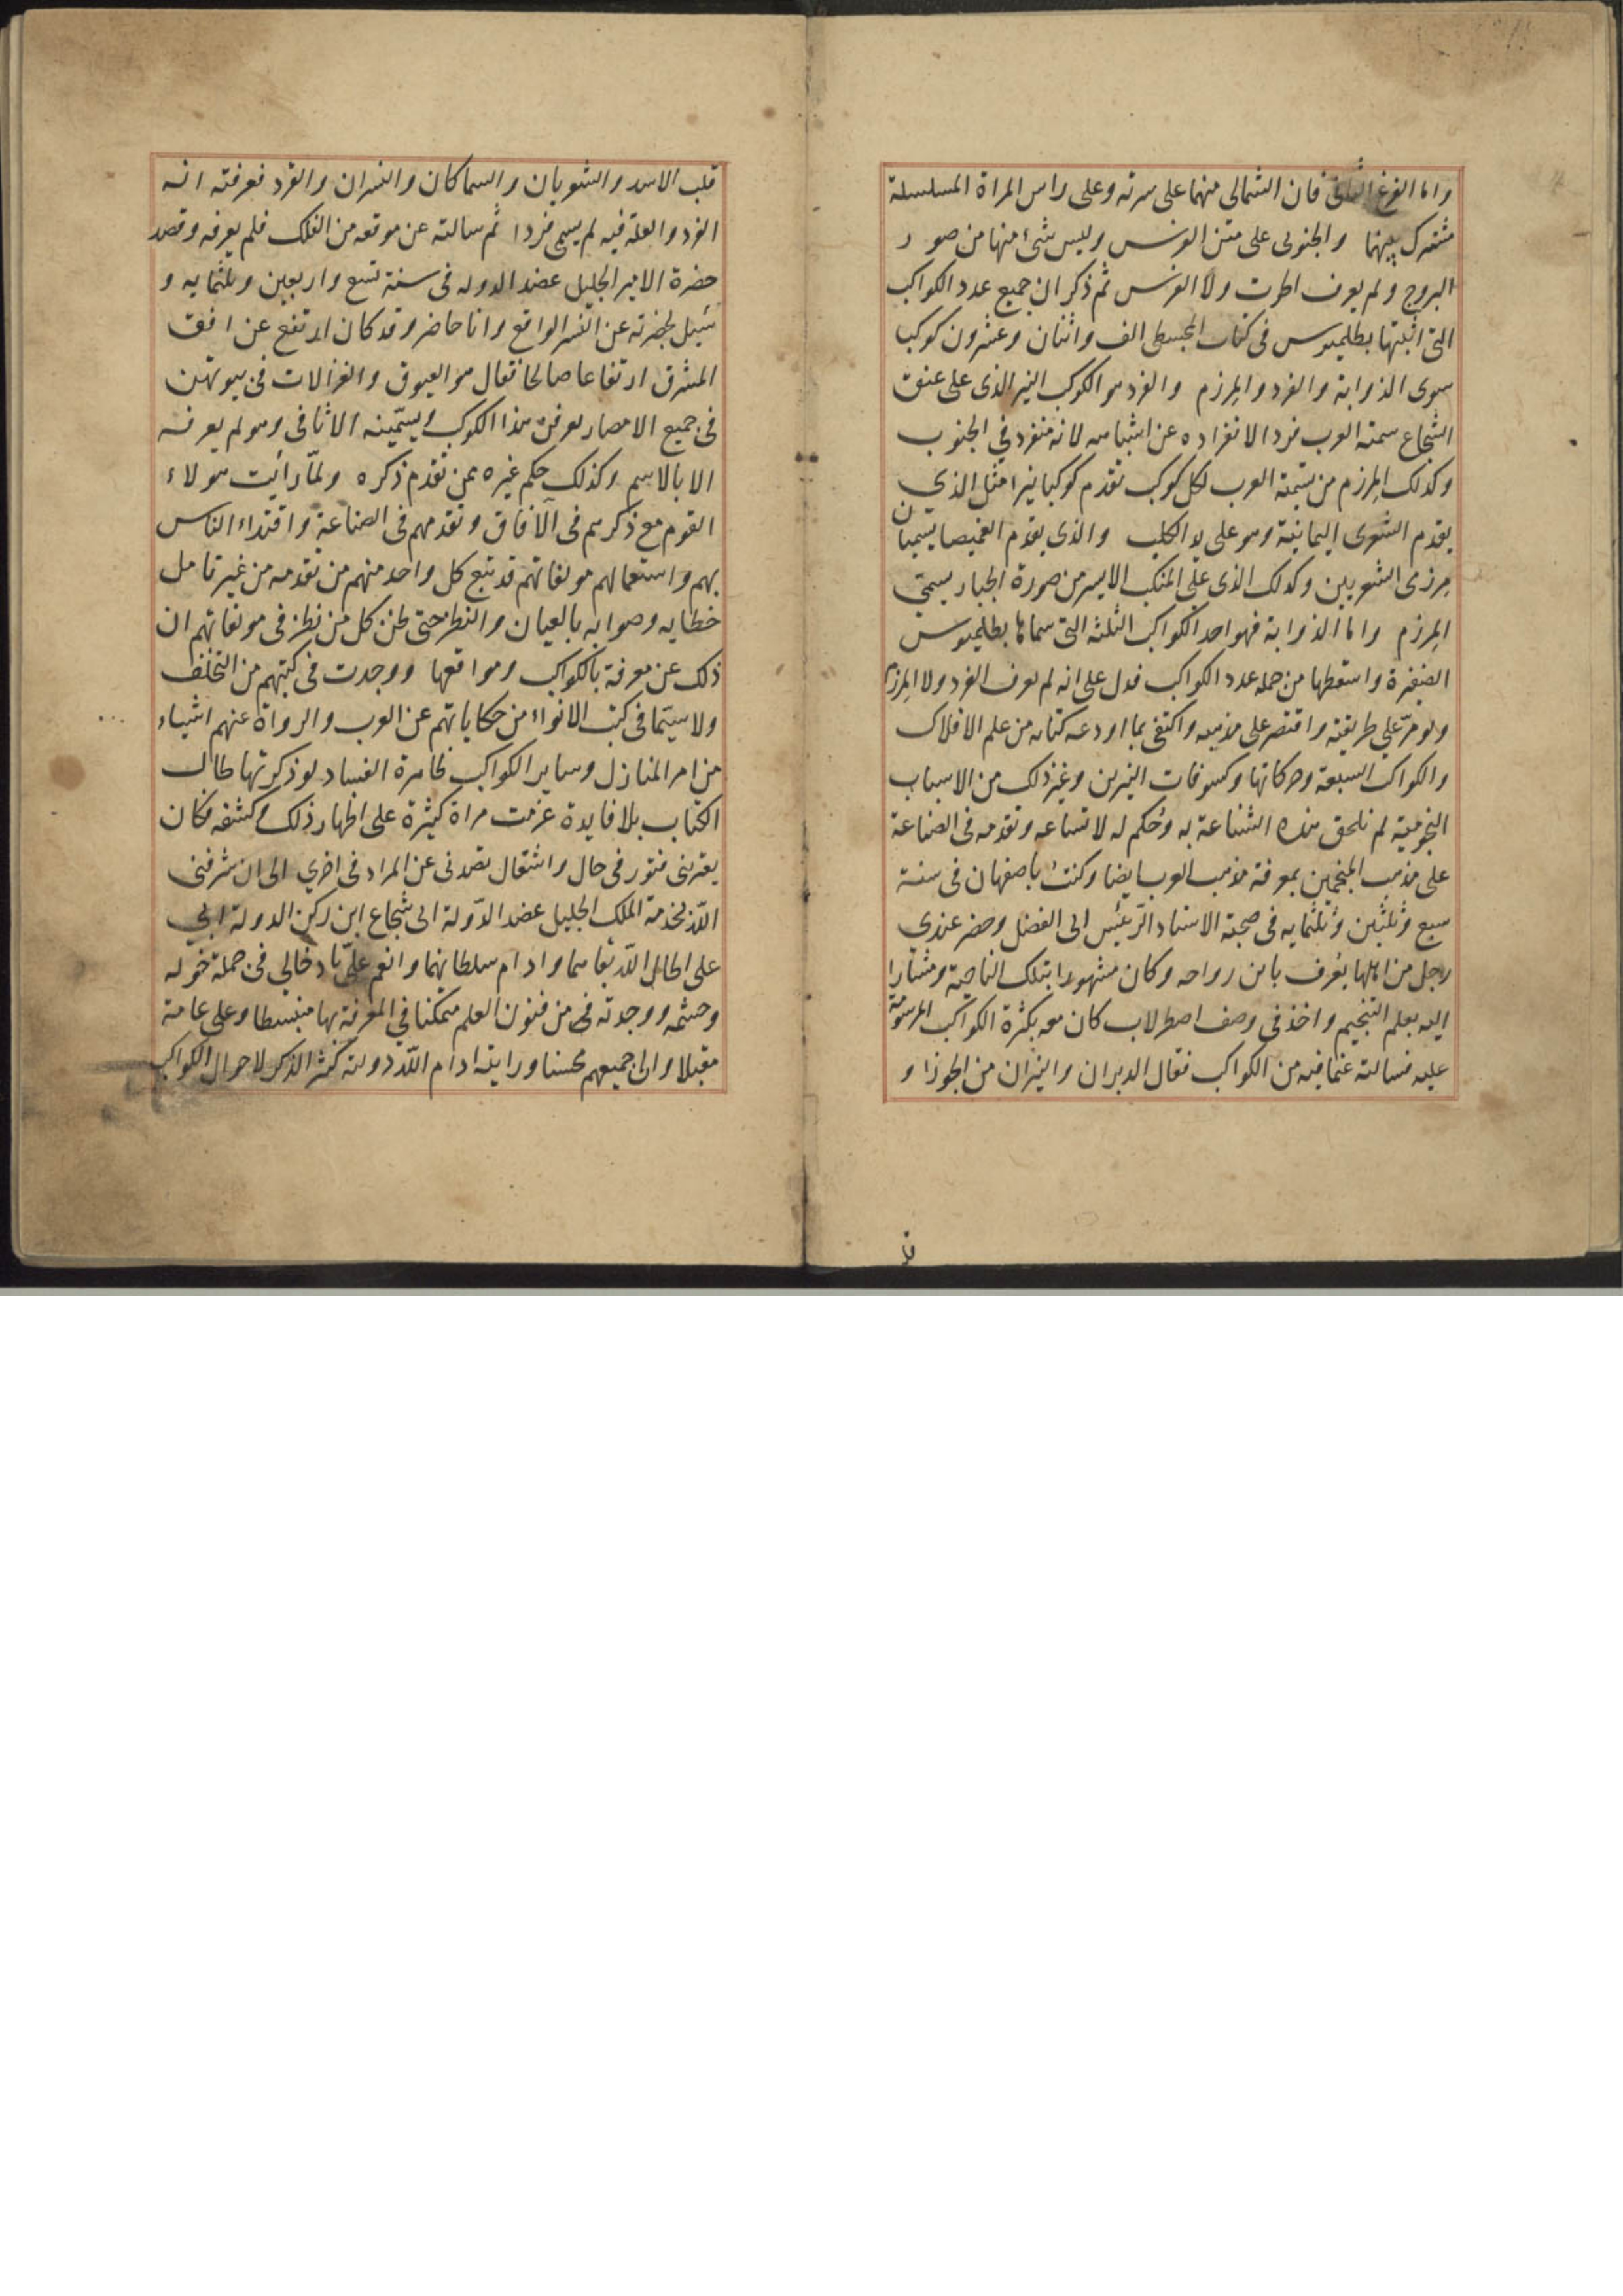 واما الفرغ الثانى فان الشمالى منهما على سرته وعلى راس المراة المسلسلة
مشترك بينهما والجنوبى على متن الفرس وليس شئ منها من صور
البروج ولم يعرف الحوت ولا الفرس ثم ذكر ان جميع عدد الكواكب
التى اثبتها بطلميوس فى كتاب المجسطى الف واثنان وعشرون كوكب
سوى الذوابة والفرد والمرزم والفرد هو الكوكب النير الذى على عنق
الشجاع سمته العرب فردا لانفراده عن اشباهه لانه منفرد في الجنوب
وكذلك المرزم من سمة العرب لكل كوكب تقدم كوكبا نيرا مثل الذي
يقدم الشعرى اليمانية وهو على يد الكلب والذى يقدم الغميصا يسميان
مرزمى الشعريين وكذلك الذى على المنكب الايسر من صورة الجبار يسمى
المرزم واما الذوابة فهو احد الكواكب الثلثه التى سماها بطلميوس
الضفيرة واسقطها من جمله عدد الكواكب فدل على انه لم يعرف الفرد ولا المرزم
ولو مرّ على طريقته واقتصر على مذهبه واكتفى بما اودعه كتابه من علم الافلاك
والكواكب السبعة وحركاتها وكسوفات النيرين وغير ذلك من الاسباب
النجومية لم تلحق هذه الشناعة به وحُكم له لاتساعه وتقدمه فى الصناعة
على مذهب المنجمين بمعرفة مذهب العرب ايضا وكنتُ باصفهان فى سنة
سبع وثلثين وثلثمايه فى صحبة الاستاد الرّئيس ابى الفضل وحضر عندي
رجل من اهلها يعُرف بابن رواحه وكان مشهورا بتلك الناحية ومشارا
اليه بعلم التنجيم واخذ فى وصف اصطرلاب كان معه بكثرة الكواكب المرسومة
عليه فسالته عمّا فيه من الكواكب فقال الدبران والنيران من الجوزا و
قلب الاسد والشعريان والسماكان والنسران والقرد فعرفته انه
الفرد والعلة فيه لم يسمى فردا ثم سالته عن موقعه من الفلك فلم يعرفه وقصد
حضرة الامير الجليل عضد الدوله فى سنة تسع واربعين وثلثمايه و
سُيل بحضرته عن النسر الواقع وانا حاضر وقد كان ارتفع عن افق
المشرق ارتفاعا صالحا فقال هو العيوق والغزالات فى بيوتهن
فى جميع الامصار يعرفن هذا الكوكب ويسمّينه الاثافى وهو لم يعرفه
الا بالاسم وكذلك حكم غيره ممن تقدم ذكره ولمّا رأيت هولاء
القوم مع ذكرهم فى الآفاق وتقدمهم فى الصناعة واقتداء الناس
بهم واستعمالهم مولفاتهم قد تبع كل واحد منهم من تقدمه من غير تامل
خطايه وصوابه بالعيان والنظر حتى ظن كل من نظر فى مولفاتهم ان
ذلك عن معرفة بالكواكب ومواقعها ووجدت فى كتبهم من التخلف
ولا سيّما فى كتب الانواء من حكاياتهم عن العرب والرواة عنهم اشياء
من امر المنازل وساير الكواكب ظاهرة الفساد لو ذكرتها طال
الكتاب بلا فايدة عزمت مراة كثيرة على اظهار ذلك وكشفه فكان
يعترينى فتور فى حال واشتغال يصدنى عن المراد فى اخري الى ان شرفنى
اللّه بخدمة الملك الجليل عضد الدّولة ابى شجاع ابن ركن الدولة ابي
على اطال اللّه بقاهما وادام سلطانهما وانعم علىّ بادخالي فى جملة خوله
وحشمه ووجدته فى من فنون العلم متمكنا في المعرفة بها منبسطا وعلى عامة
مقبلا والى جميعهم محسنا ورايته ادام اللّه دولته كثر الذكر لاحوال الكواكب